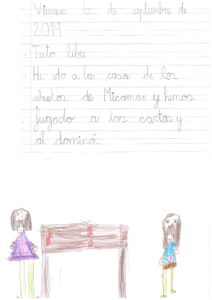 Viernes 6 de septiembre de
2019
Texto libre
He ido a la casa de los
abuelos de Miramar y hemos
jugado a las cartas y
al dominó.